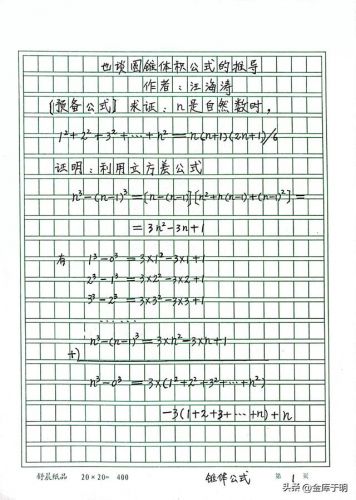 也谈圆锥体积公式的推导
作者:汪海涛
[预备公式] 求证:n是自然数时,
1²+2²+3²+…+n²=n(n+1)(2n+1)/6
证明:利用立方差公式
n³-(n-1)³=[n-(n-1)][n²+n(n-1)+(n-1)²]=
=3n²-3n+1
有 1³-0³=3×1²-3×1+1
2³-1³=3×2²-3×2+1
3³-2³=3×3²-3×3+1
……
n³-(n-1)³=3×n²-3×n+1
+)
n³-0³=3×(1²+2²+3²+…+n²)
-3(1+2+3+…+n)+n
舒晨纸品 20×20=400 锥体公式 第 1 页
头条@金库子明